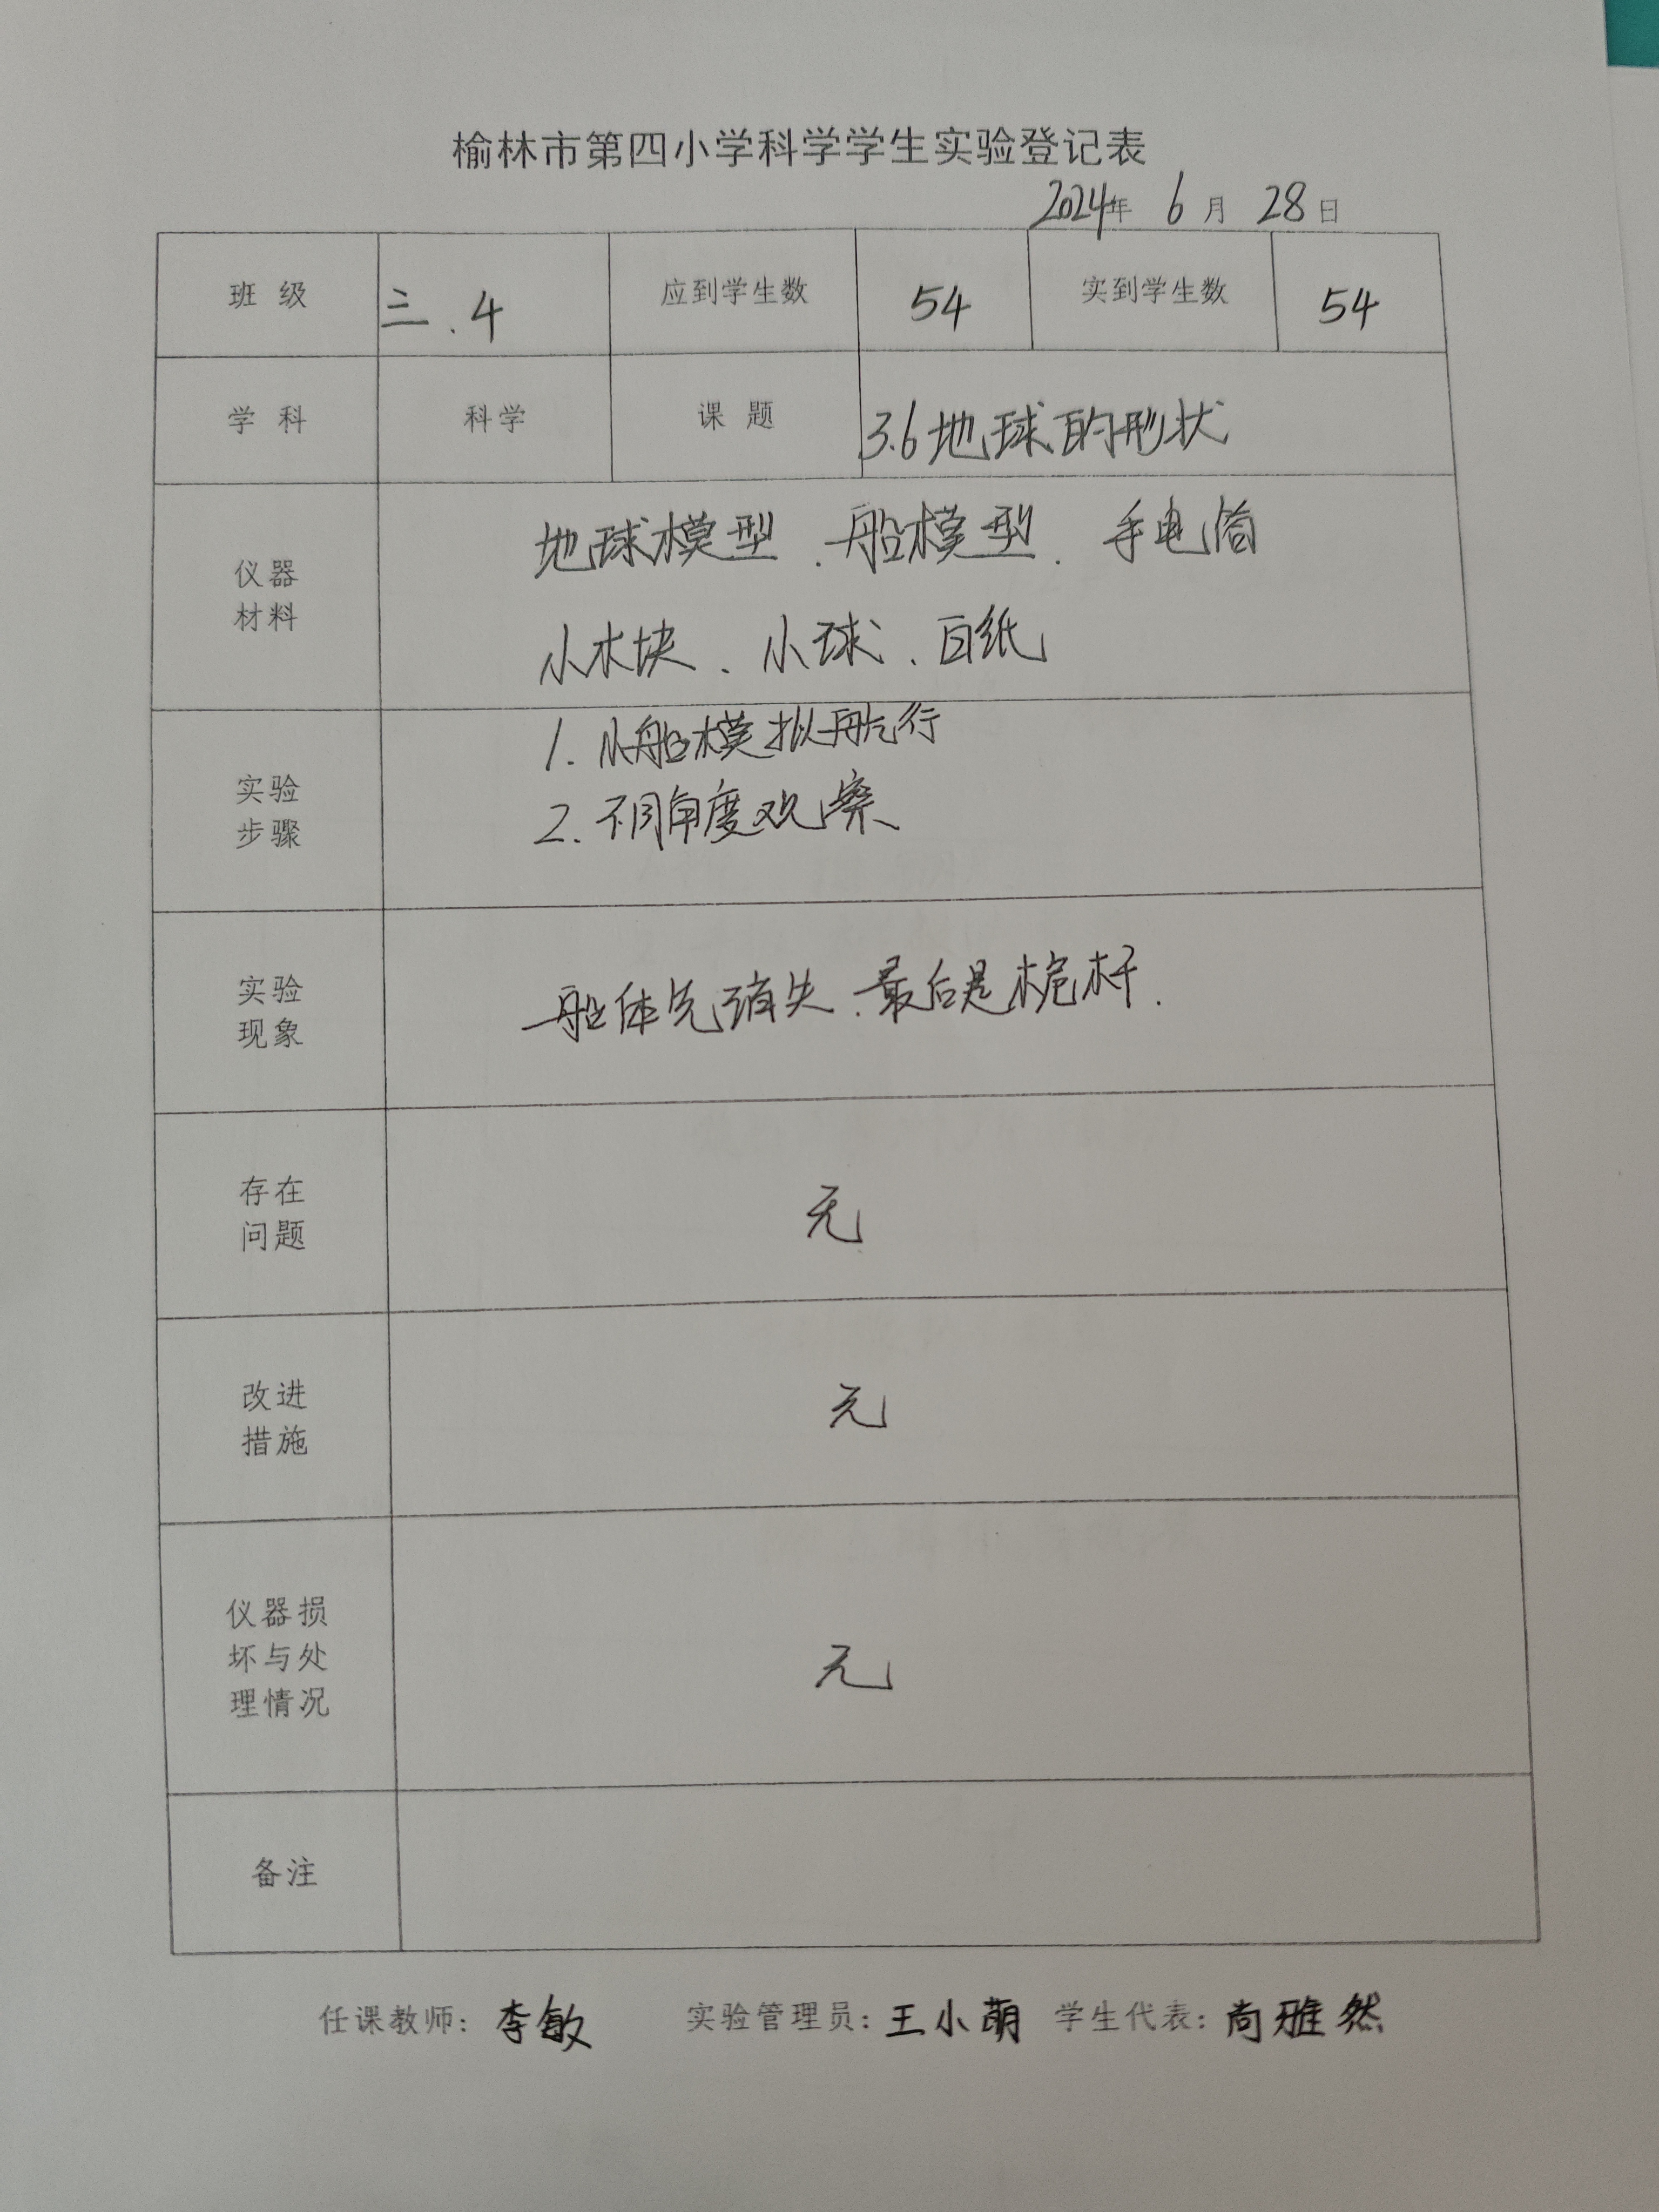 榆林市第四小学科学学生实验登记表
2024年 6月 28日
班级 三.4 应到学生数 54 实到学生数 54
学科 科学 课题 3.6地球的形状
仪器
材料
地球模型、船模型、手电筒
小木块、小球、白纸
实验
步骤
1.小船模拟航行
2.不同角度观察
实验
现象
船体先消失、最后是桅杆.
存在
问题
无
改进
措施
无
仪器损
坏与处
理情况
无
备注
任课教师：李敏 实验管理员：王小萌 学生代表：尚雅然